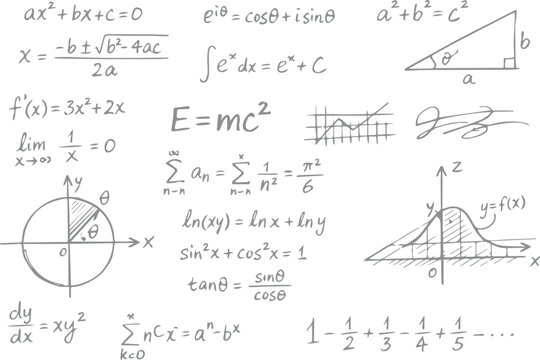 ax² + bx + c = 0
e^iθ = cosθ + i sinθ
a² + b² = c²
x = (-b ± √(b² - 4ac)) / 2a
∫ e^x dx = e^x + C
θ
b
a
f'(x) = 3x² + 2x
E = mc²
lim x→∞ 1/x = 0
∞ ∑ n-n aₙ = x ∑ n-n 1/n² = π²/6
y
θ
θ
0
x
ln(xy) = ln x + ln y
sin²x + cos²x = 1
tanθ = sinθ/cosθ
z
y
y = f(x)
0
x
dy/dx = xy²
x ∑ k=0 nCx = aⁿ - bˣ
1 - 1/2 + 1/3 - 1/4 + 1/5 - ····